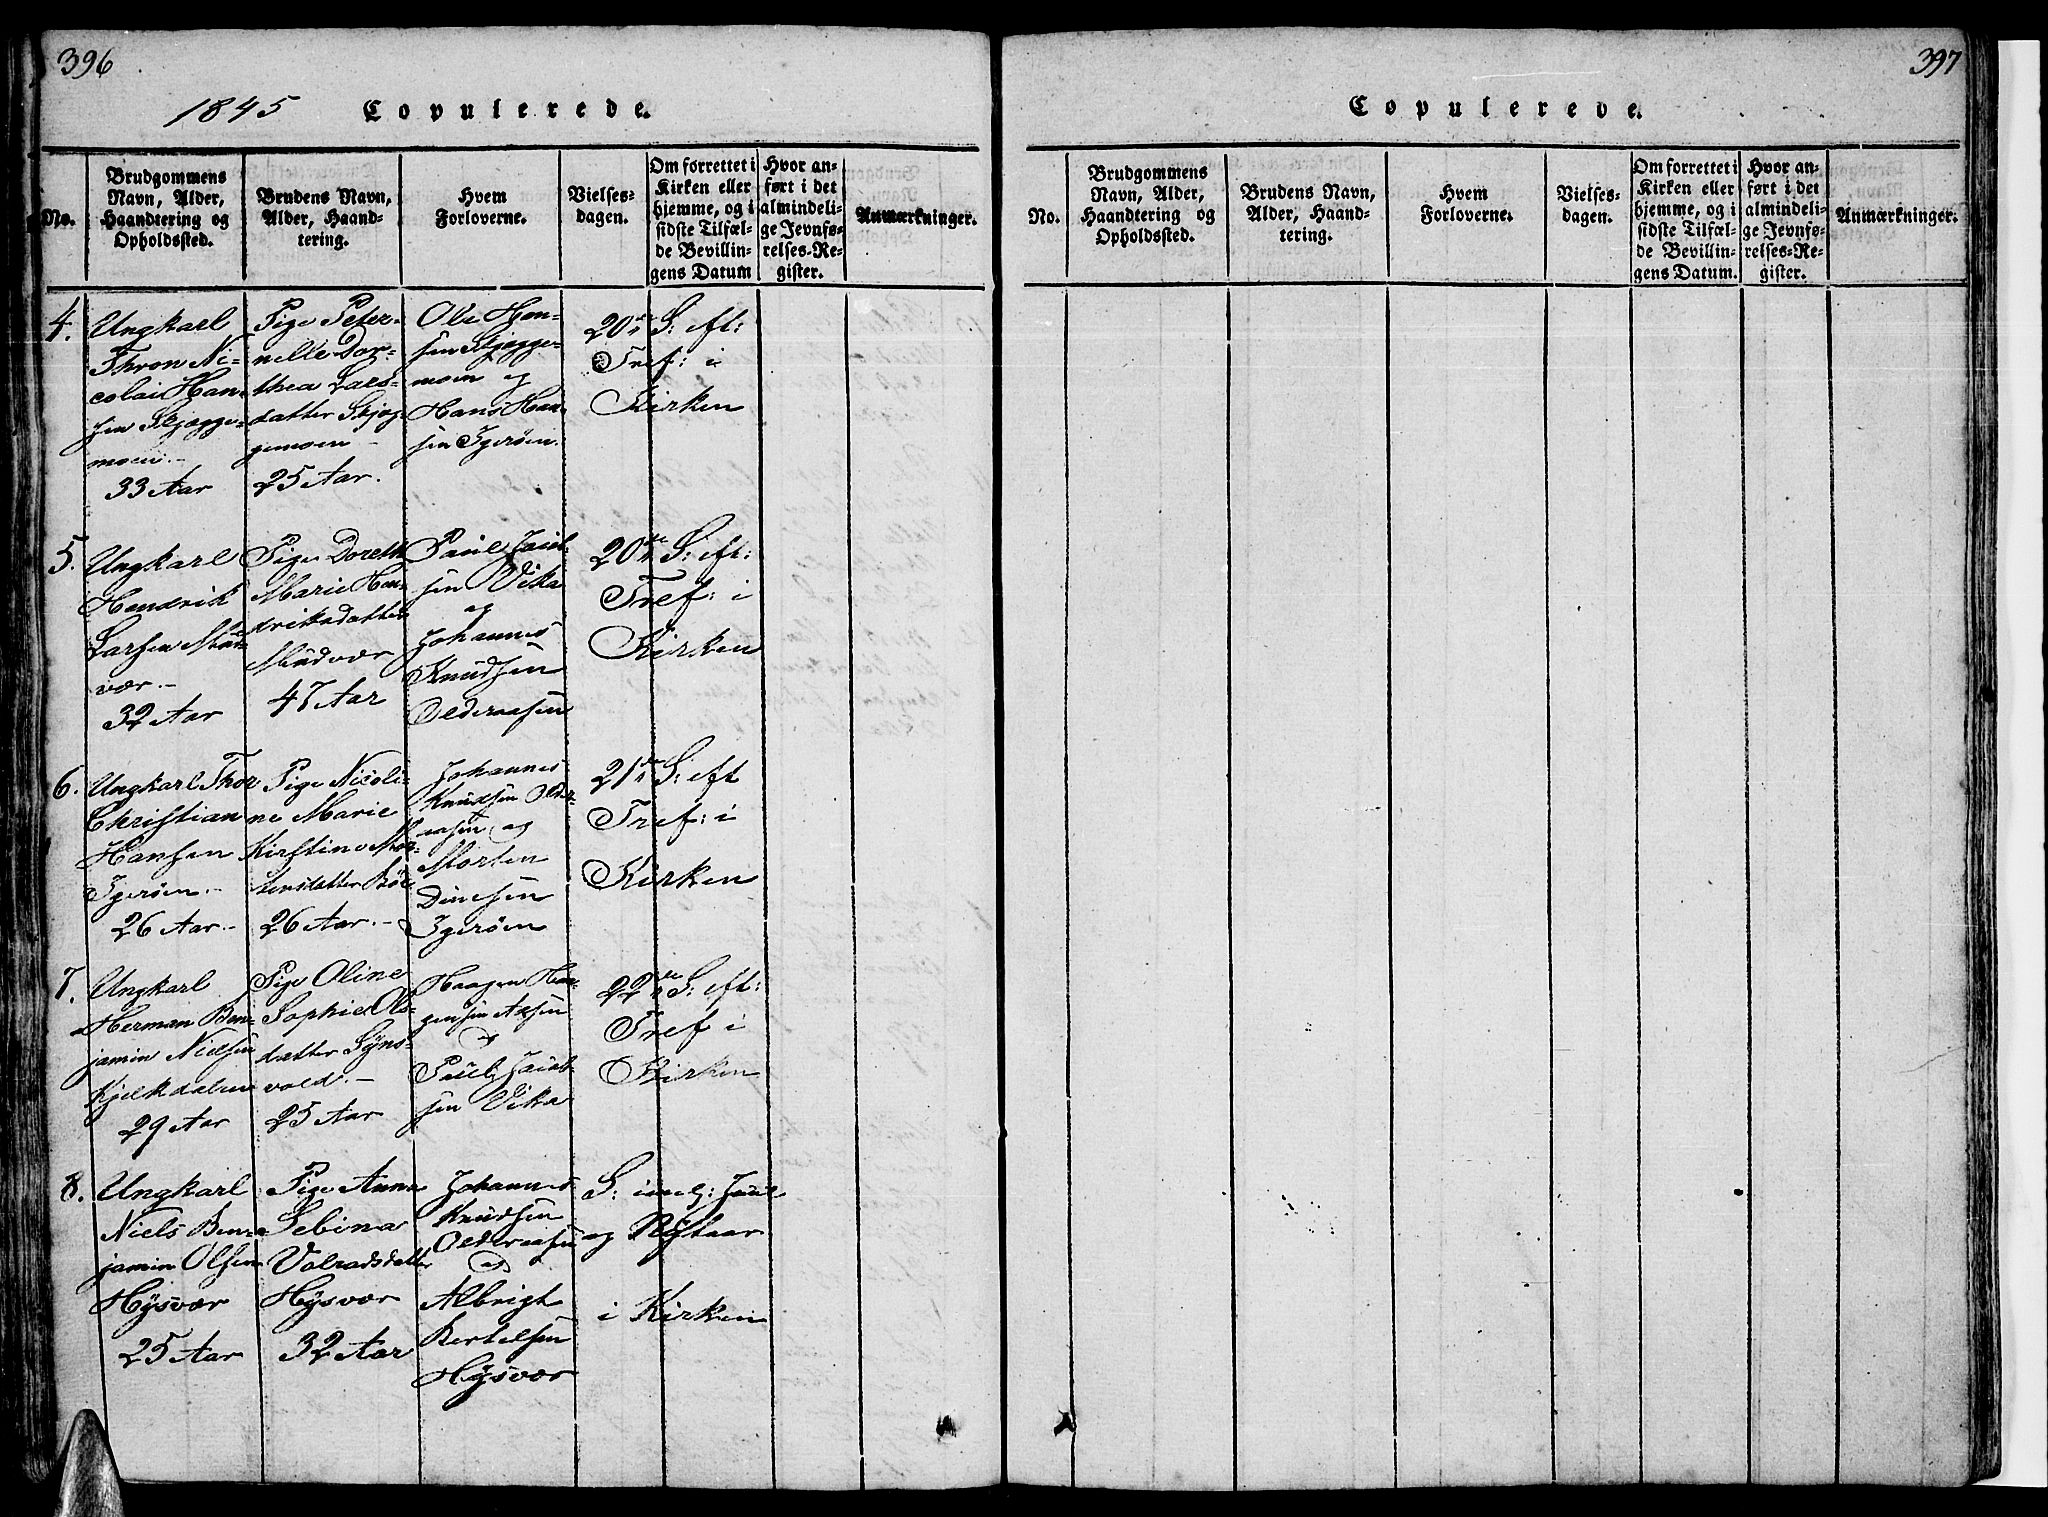 396
1845 Copulerede.
No.
Brudgommens
Navn, Alder,
Haandtering og
Opholdssted.
Brudens Navn,
Alder, Haand-
tering.
Hvem
Forloverne.
Vielses-
dagen.
Om forrettet i
Kirken eller
hjemme, og i
sidste Tilfæl-
de Bevillin-
gens Datum
Hvor an-
ført i det
almindeli-
ge Jevnfø-
relses-Re-
gister.
Anmærkninger.
4.
Ungkarl
Thron Ni-
colai Han-
sen Skjegge-
moen.-
33 Aar
Pige Peter-
nelle Dor-
thea Lars-
datter Skjeg-
gemoen -
25 Aar.
Ole Han-
sen Skjegge-
moen og
Hans Han-
sen Igerøen.
20de S: eft:
Tref: i
Kirken
5.
Ungkarl
Hendrik
Larsen Mud-
vær.-
32 Aar
Pige Doreth
Marie Hen-
driksdatter
Mudvær
47 Aar
Paul Jacob-
sen Vika
og
Johannes
Knudsen
Olderaasen
20de S: eft:
Tref: i
Kirken
6.
Ungkarl Thor
Christian
Hansen
Igerøen.-
26 Aar.-
Pige Nicoli-
ne Marie
Kirstine Mor-
tensdatter
26 Aar.-
Johannes
Knudsen Older-
aasen og
Morten
Dinesen
Igerøen
21de S: eft
Tref: i
Kirken
7.
Ungkarl
Herman Ben-
jamin Nielsen
Kjelkdalen
29 Aar
Pige Oline
Sophie Ols-
datter Syns-
vold.-
25 Aar
Haagen Haa-
gensen Axsen
og
Paul Jacob-
sen Vika
22de S: eft:
Tref i
Kirken
8.
Ungkarl
Niels Ben-
jamin Olsen
Hysvær
25 Aar
Pige Anna
Sebina
Volradsdatter
Hysvær
32 Aar
Johannes
Knudsen
Olderaasen
og
Albrigt
Bertelsen
Hysvær
S: imel: Juul
og Nytaar
i Kirken
397
Copulerede.
No.
Brudgommens
Navn, Alder,
Haandtering og
Opholdssted.
Brudens Navn,
Alder, Haand-
tering.
Hvem
Forloverne.
Vielses-
dagen.
Om forrettet i
Kirken eller
hjemme, og i
sidste Tilfæl-
de Bevillin-
gens Datum.
Hvor an-
ført i det
almindeli-
ge Jevnfø-
relses-Re-
gister.
Anmærkninger.